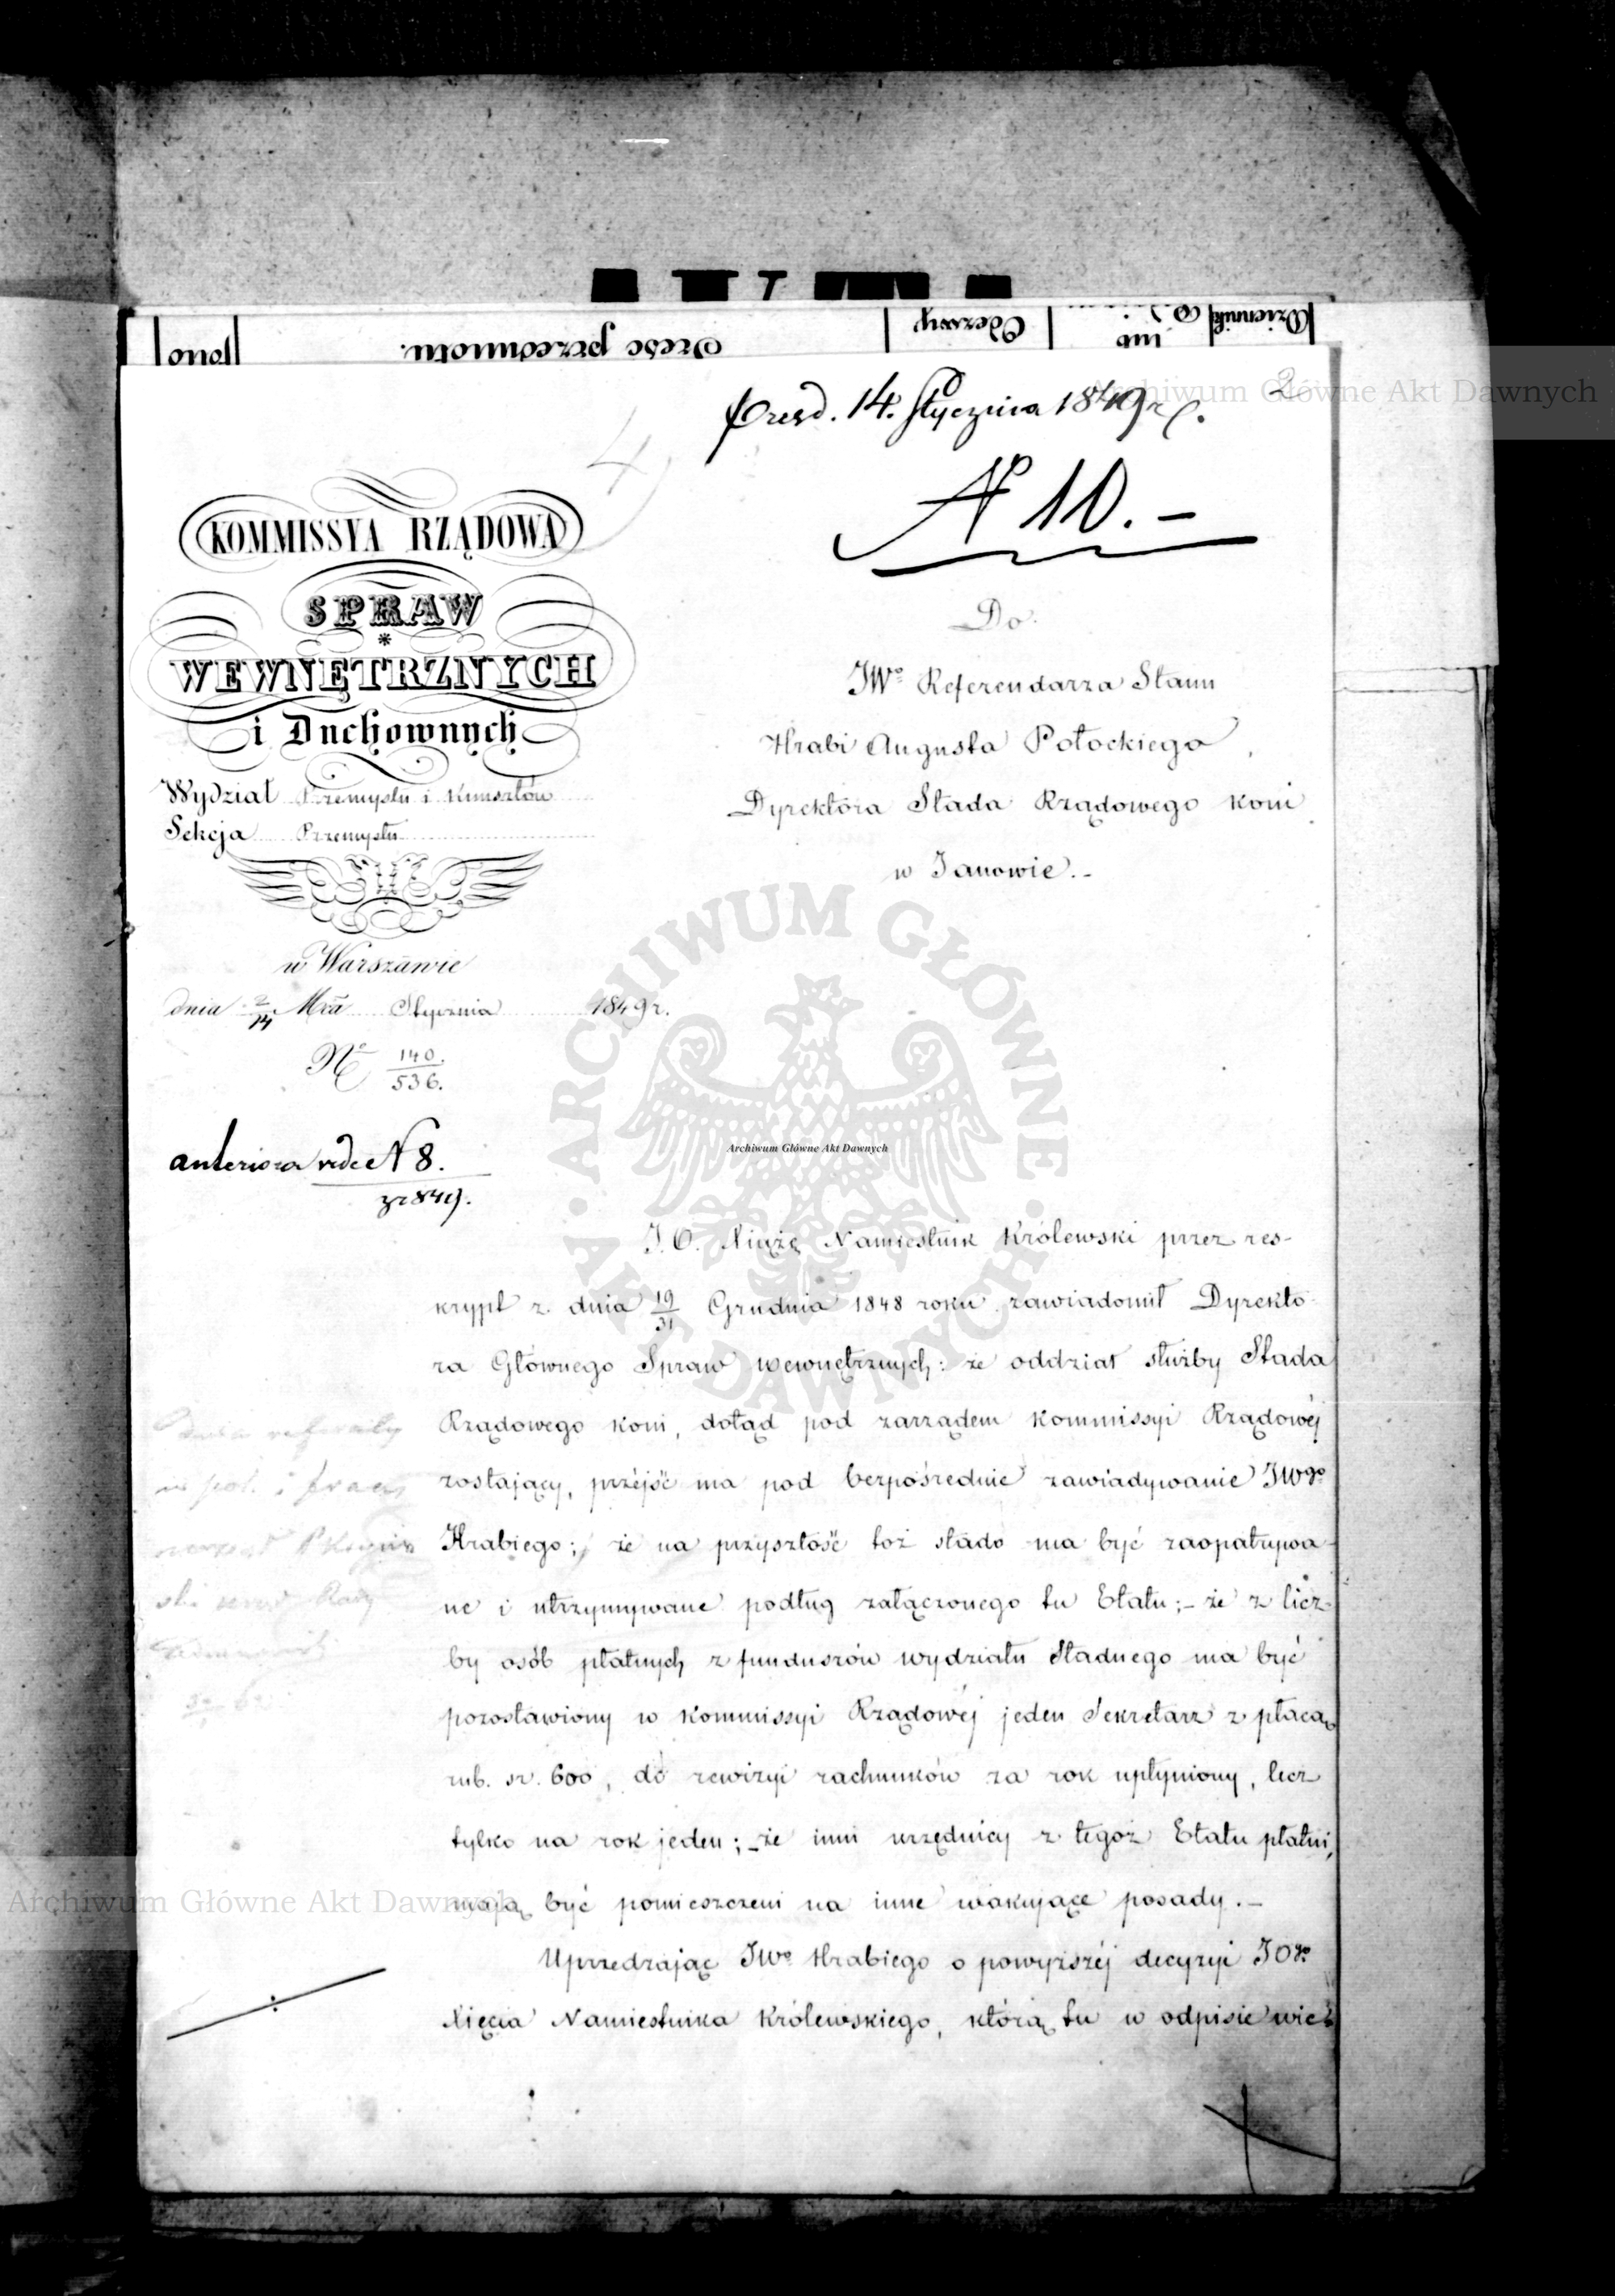 Presd. 14. Stycznia 1849 r.
2
4
N° 10. –
KOMMISSYA RZĄDOWA
SPRAW
WEWNĘTRZNYCH
i Duchownych
Wydział Przemysłu i Kunsztów
Sekcja Przemysłu
w Warszawie
dnia 2/14 Mca Stycznia 1849 r.
N° 140./536.
anteriora vide N 8.
z r 849.
Do
JWo Referendarza Stanu
Hrabi Augusta Potockiego,
Dyrektora Stada Rządowego Koni
w Janowie. –
J. O. Xiążę Namiestnik Królewski przez res-
krypt z dnia 19/31 Grudnia 1848 roku zawiadomił Dyrekto-
ra Głównego Spraw wewnętrznych: że oddział służby Stada
Rządowego koni, dotąd pod zarządem Kommissyi Rządowéj
zostający, przéjść ma pod bezpośrednie zawiadywanie JWgo
Hrabiego; że na przyszłość toż stado ma być zaopatrywa-
ne i utrzymywane podług załączonego tu Etatu; – że z licz-
by osób płatnych z funduszów wydziału Stadnego ma być
pozostawiony w Kommissyi Rządowéj jeden Sekretarz z płacą
rub. sr. 600, do rewizyi rachunków za rok upłyniony, lecz
tylko na rok jeden; – że inni urzędnicy z tegoż Etatu płatni,
mają być pomieszczeni na inne wakujące posady. –
Uprzedzając JWo Hrabiego o powyższéj decyzyi JOgo
Xięcia Namiestnika Królewskiego, którą tu w odpisie wie-
dziennik
Odezwy
Treść przedmiotu.
Archiwum Główne Akt Dawnych
ARCHIWUM GŁÓWNE
AKT DAWNYCH
Archiwum Główne Akt Dawnych
Archiwum Główne Akt Dawnych